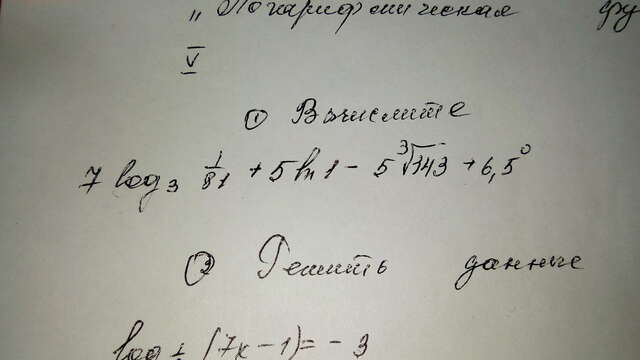 „Логарифмическая фу
V
① Вычислите
7 log₃ 1/81 + 5 ln 1 - 5 ∛343 + 6,5⁰
② Решить данные
(7x-1) = -3